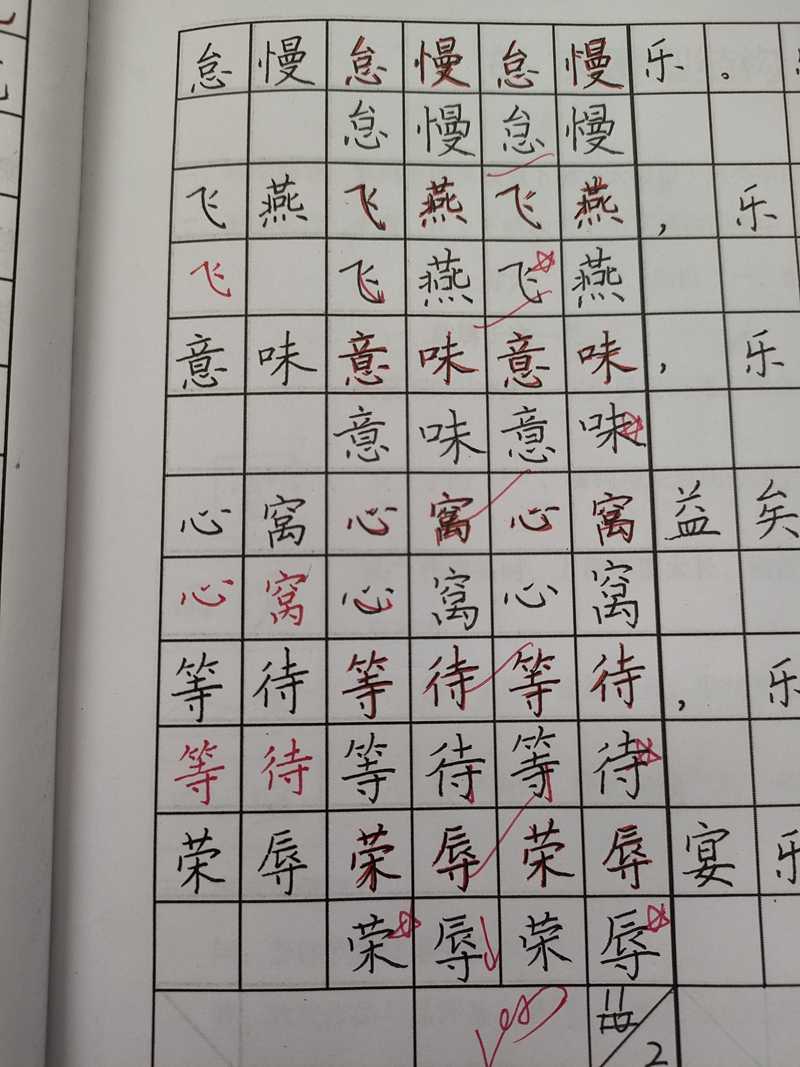 怠慢怠慢怠慢乐。
怠慢怠慢
飞燕飞燕飞燕，乐
飞飞燕飞燕
意味意味意味，乐
意味意味
心窝心窝心窝益矣
心窝心窝心窝
等待等待等待，乐
等待等待等待
荣辱荣辱荣辱宴乐
荣辱荣辱
2